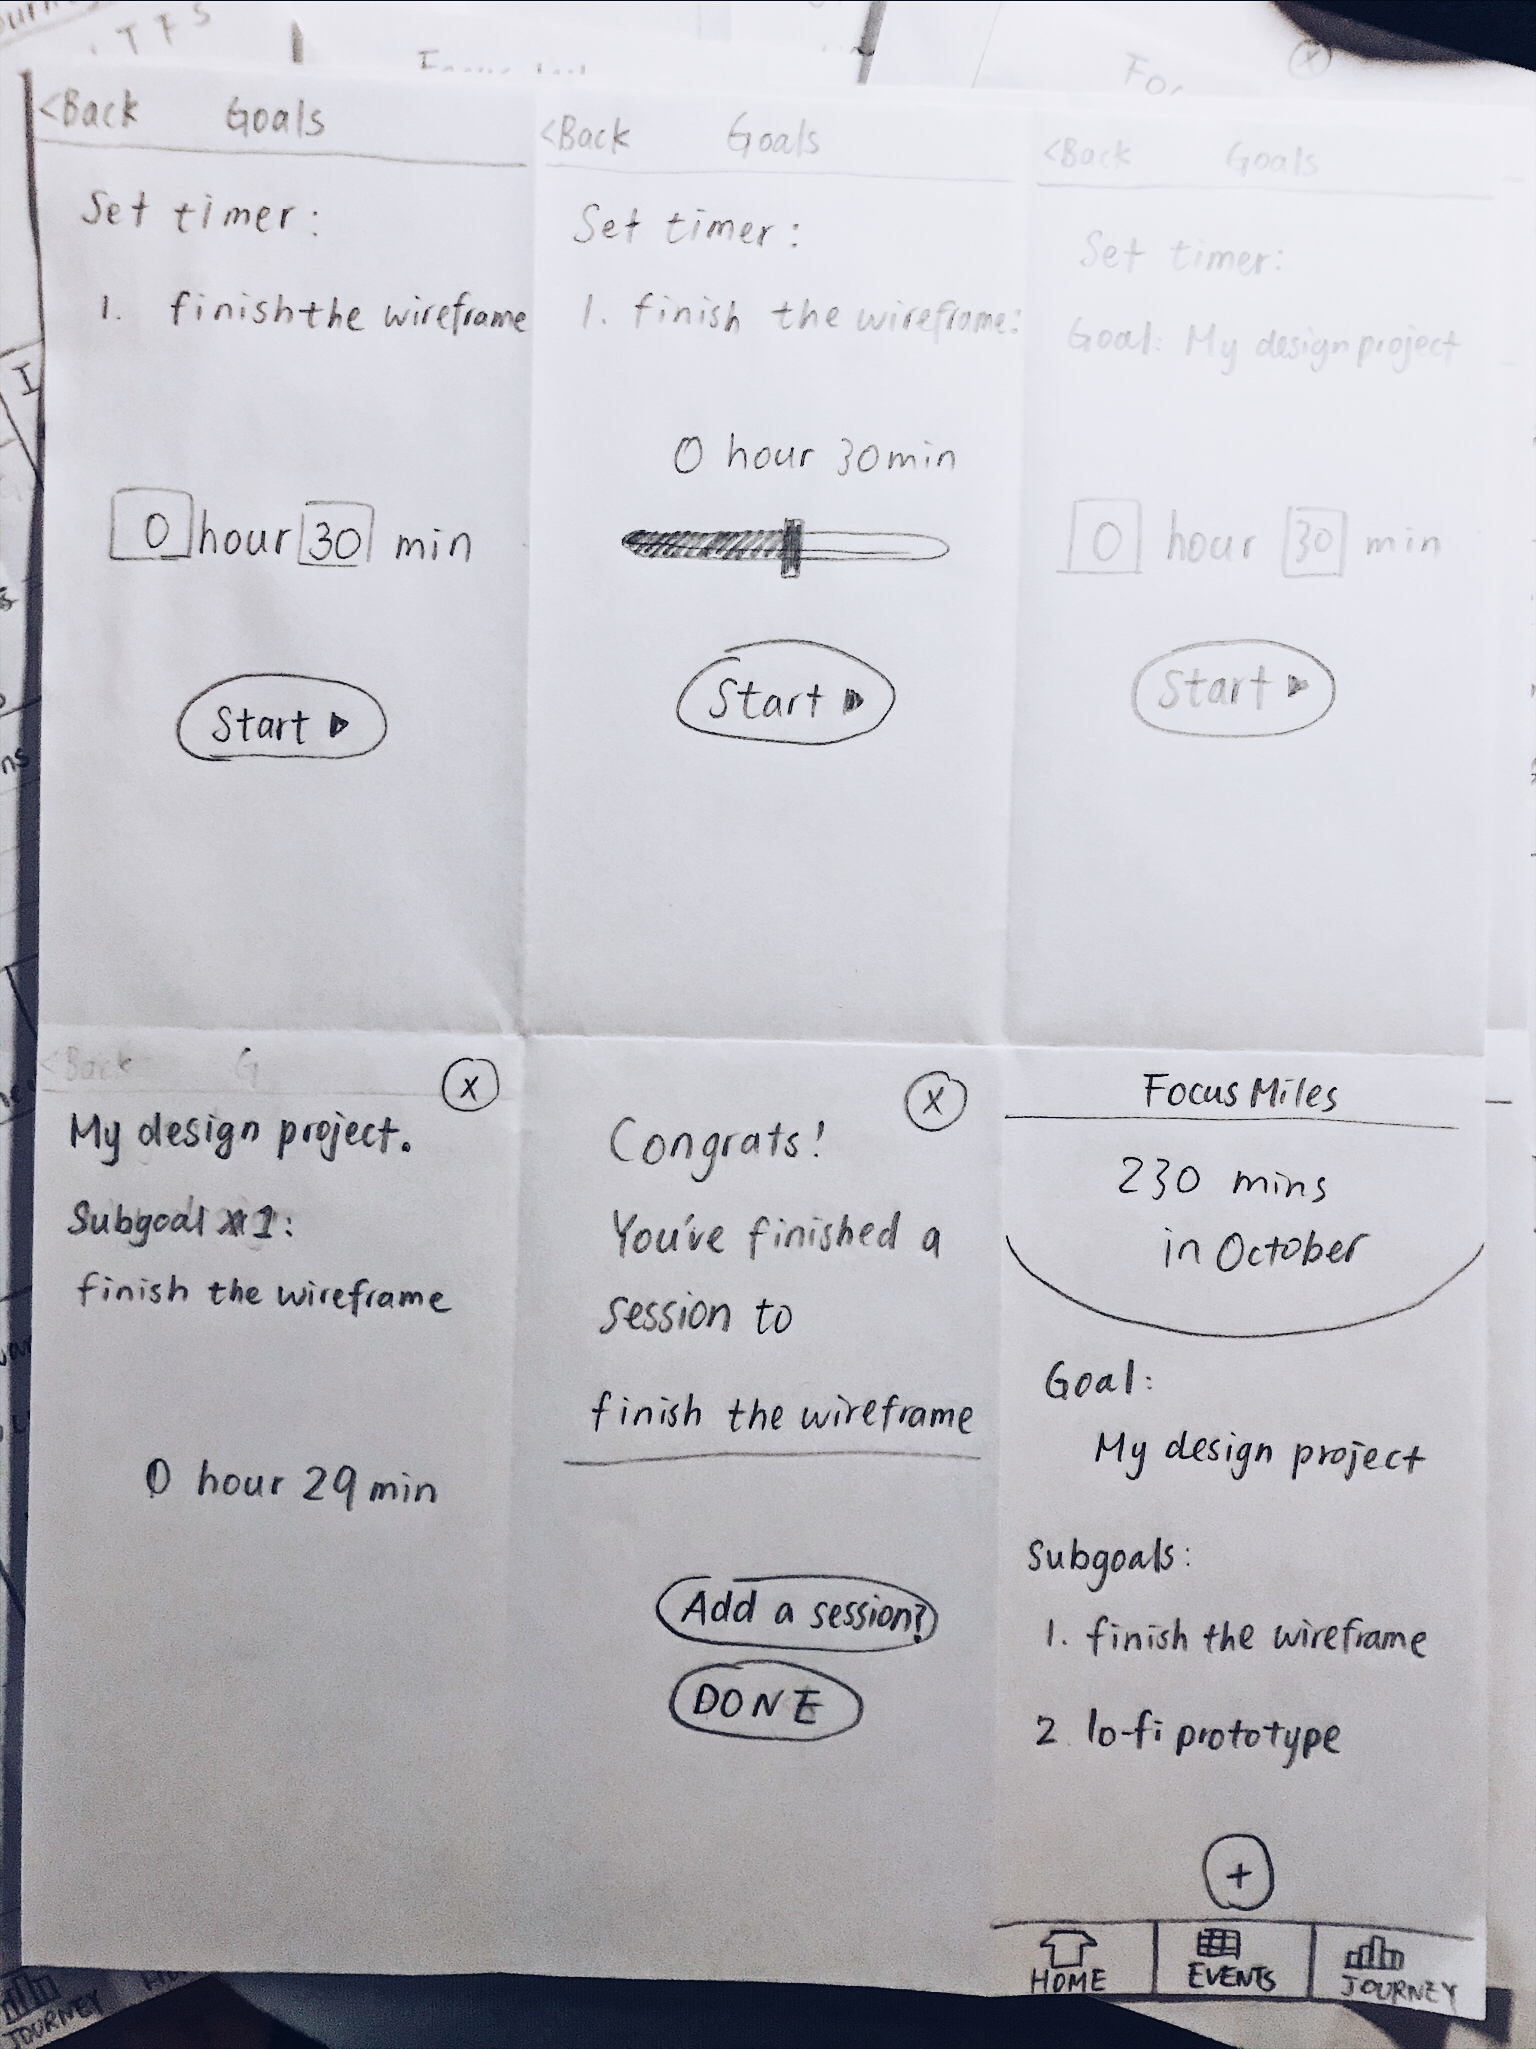 <Back Goals
Set timer:
1. finish the wireframe
0 hour 30 min
Start
<Back Goals
Set timer:
1. finish the wireframe:
0 hour 30min
Start
<Back Goals
Set timer:
Goal: My design project
0 hour 30 min
Start
<Back G
X
My design project.
Subgoal #1:
finish the wireframe
0 hour 29 min
X
Congrats!
You've finished a
session to
finish the wireframe
Add a session?
DONE
Focus Miles
230 mins
in October
Goal:
My design project
Subgoals:
1. finish the wireframe
2. lo-fi prototype
+
HOME EVENTS JOURNEY
JOURNEY